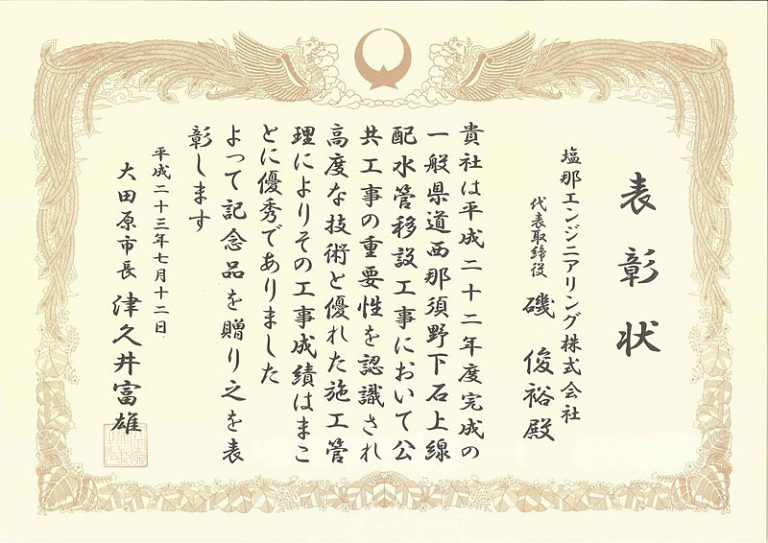 表彰状
塩那エンジニアリング株式会社
代表取締役 磯俊裕殿
貴社は平成二十二年度完成の
一般県道西那須野下石上線
配水管移設工事において公
共工事の重要性を認識され
高度な技術と優れた施工管
理によりその工事成績はまこ
とに優秀でありました
よって記念品を贈り之を表
彰します
平成二十三年七月十二日
大田原市長 津久井富雄